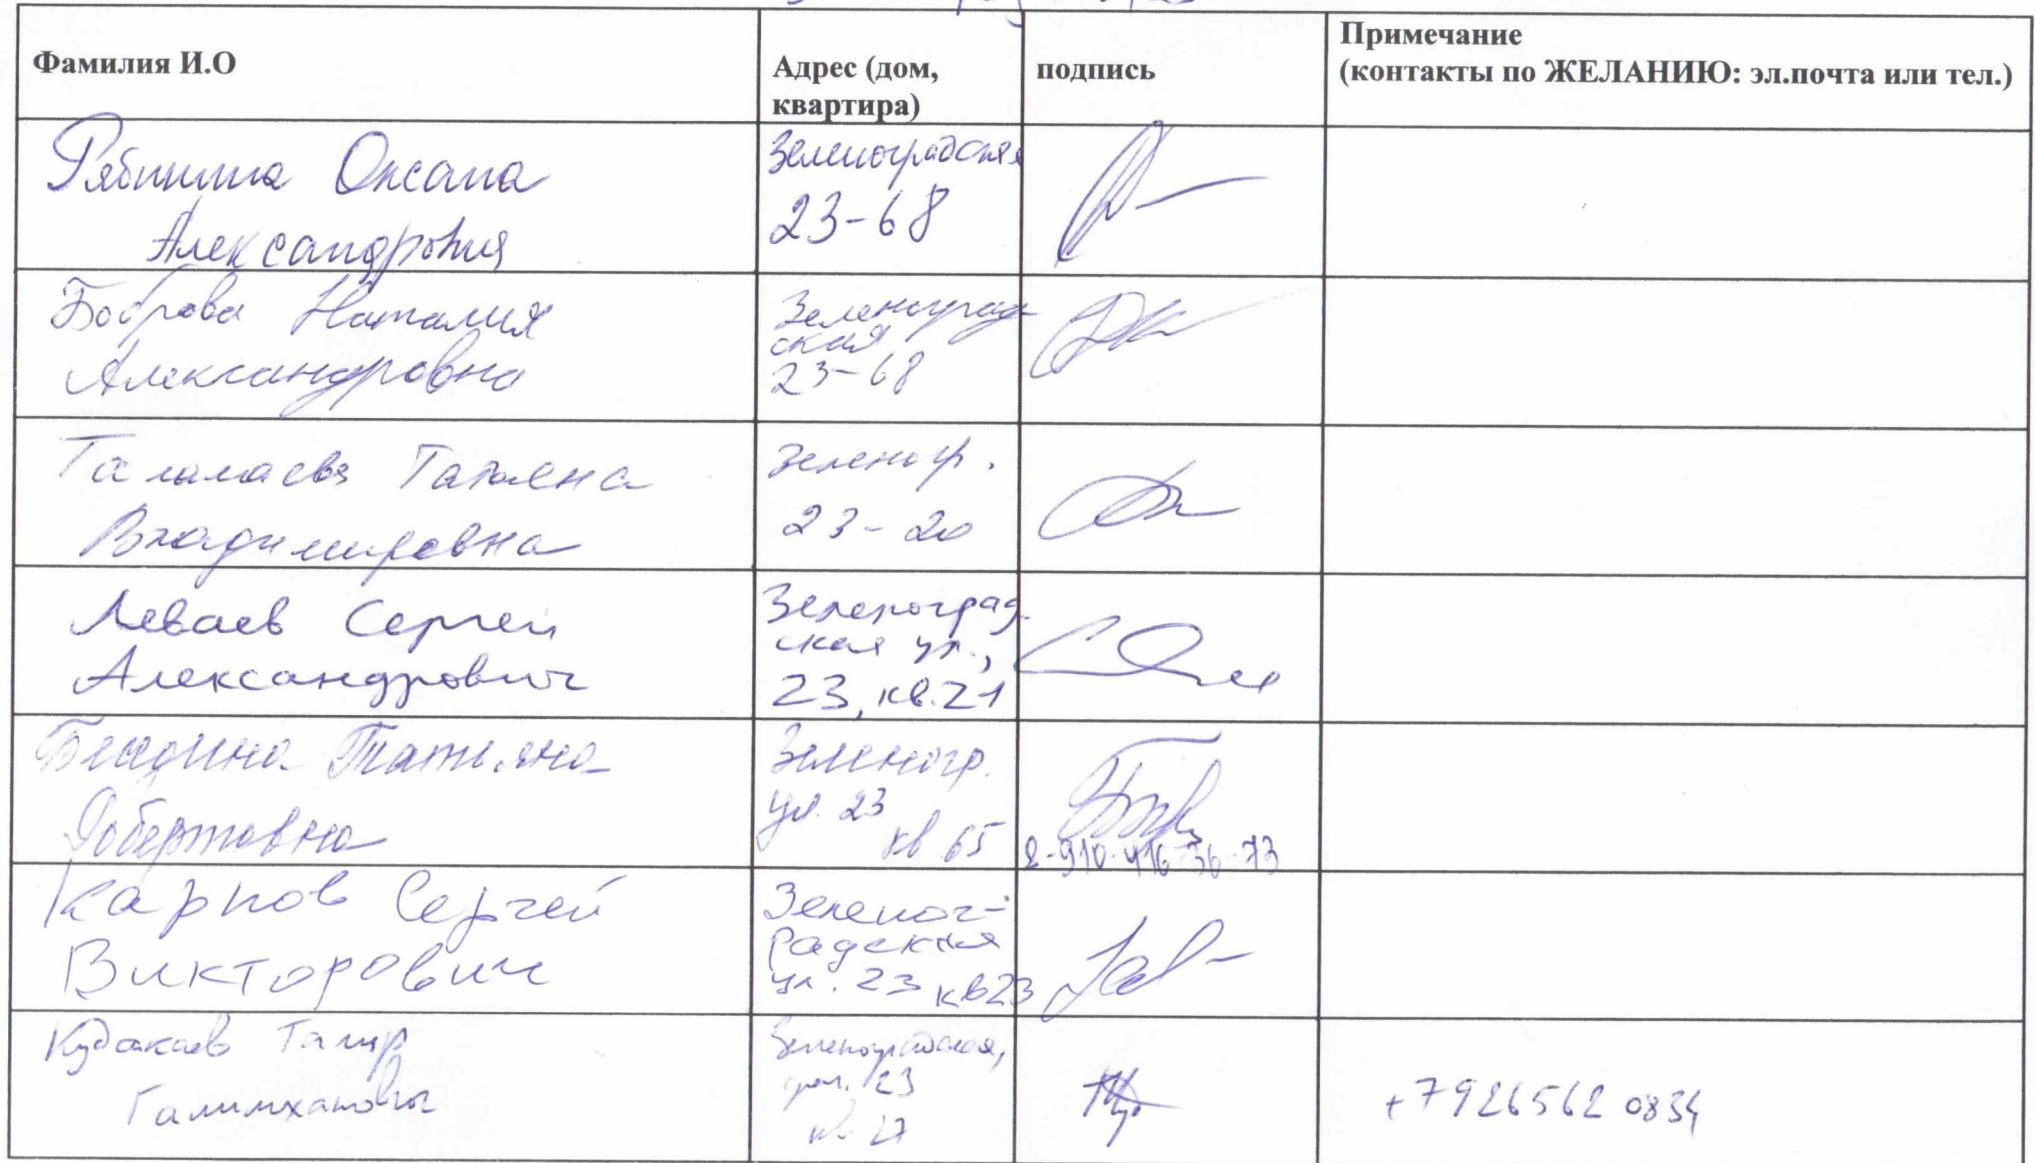 Фамилия И.О
Адрес (дом,
квартира)
подпись
Примечание
(контакты по ЖЕЛАНИЮ: эл.почта или тел.)
Рябинина Оксана
Александровна
Зеленоградская
23-68
Боброва Наталия
Александровна
Зеленоград
ская
23-68
Таламаева Татьяна
Владимировна
Зеленогр.
23-20
Леваев Сергей
Александрович
Зеленоград-
ская ул.,
23, кв.21
Татьяна
Робертовна
Зеленогр.
ул. 23
кв 65
8-910-416-36-73
Карпов Сергей
Викторович
Зеленог-
радская
ул. 23 кв23
Кудакаев Тагир
Галимханович
Зеленоградская,
23
27
+7926562 0834